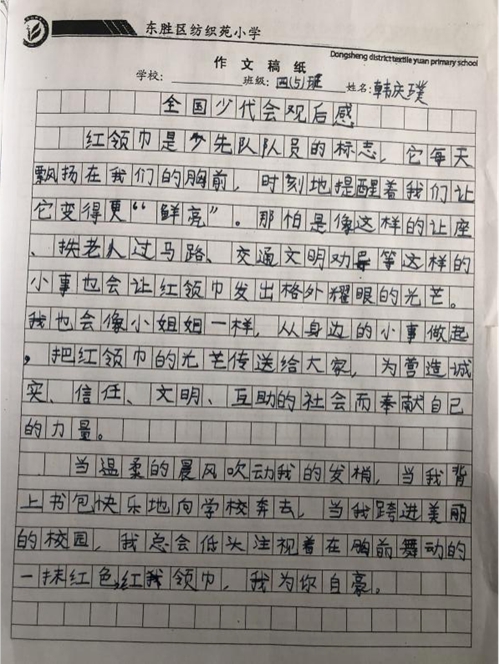 东胜区纺织苑小学
Dongsheng district textile yuan primary school
作文稿纸
学校: 班级: 四(5)班 姓名: 韩庆璞
全国少代会观后感
红领巾是少先队队员的标志，它每天
飘扬在我们的胸前，时刻地提醒着我们让
它变得更“鲜亮”。那怕是像这样的让座
、扶老人过马路、交通文明劝导等这样的
小事也会让红领巾发出格外耀眼的光芒。
我也会像小姐姐一样，从身边的小事做起
，把红领巾的光芒传送给大家，为营造诚
实、信任、文明、互助的社会而奉献自己
的力量。
当温柔的晨风吹动我的发梢，当我背
上书包快乐地向学校奔去，当我跨进美丽
的校园，我总会低头注视着在胸前舞动的
一抹红色，红领巾，我为你自豪。